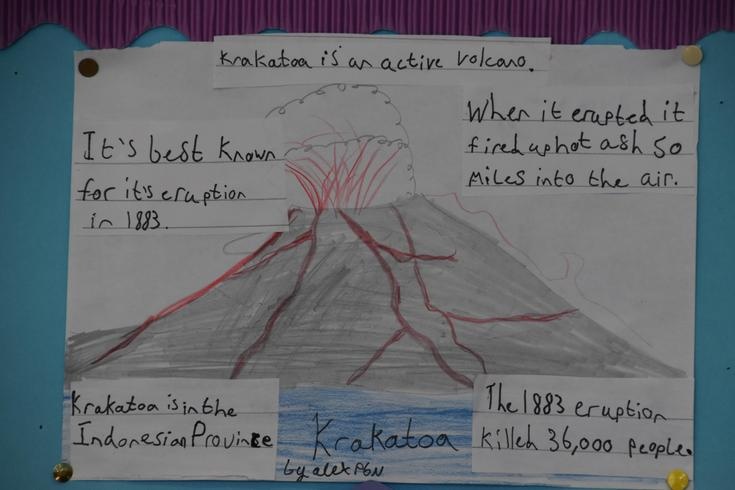 Krakatoa is an active volcano.
It's best known
for it's eruption
in 1883.
When it erupted it
fired up hot ash 50
miles into the air.
Krakatoa is in the
Indonesian Province
Krakatoa
by alex PGN
The 1883 eruption
killed 36,000 people.